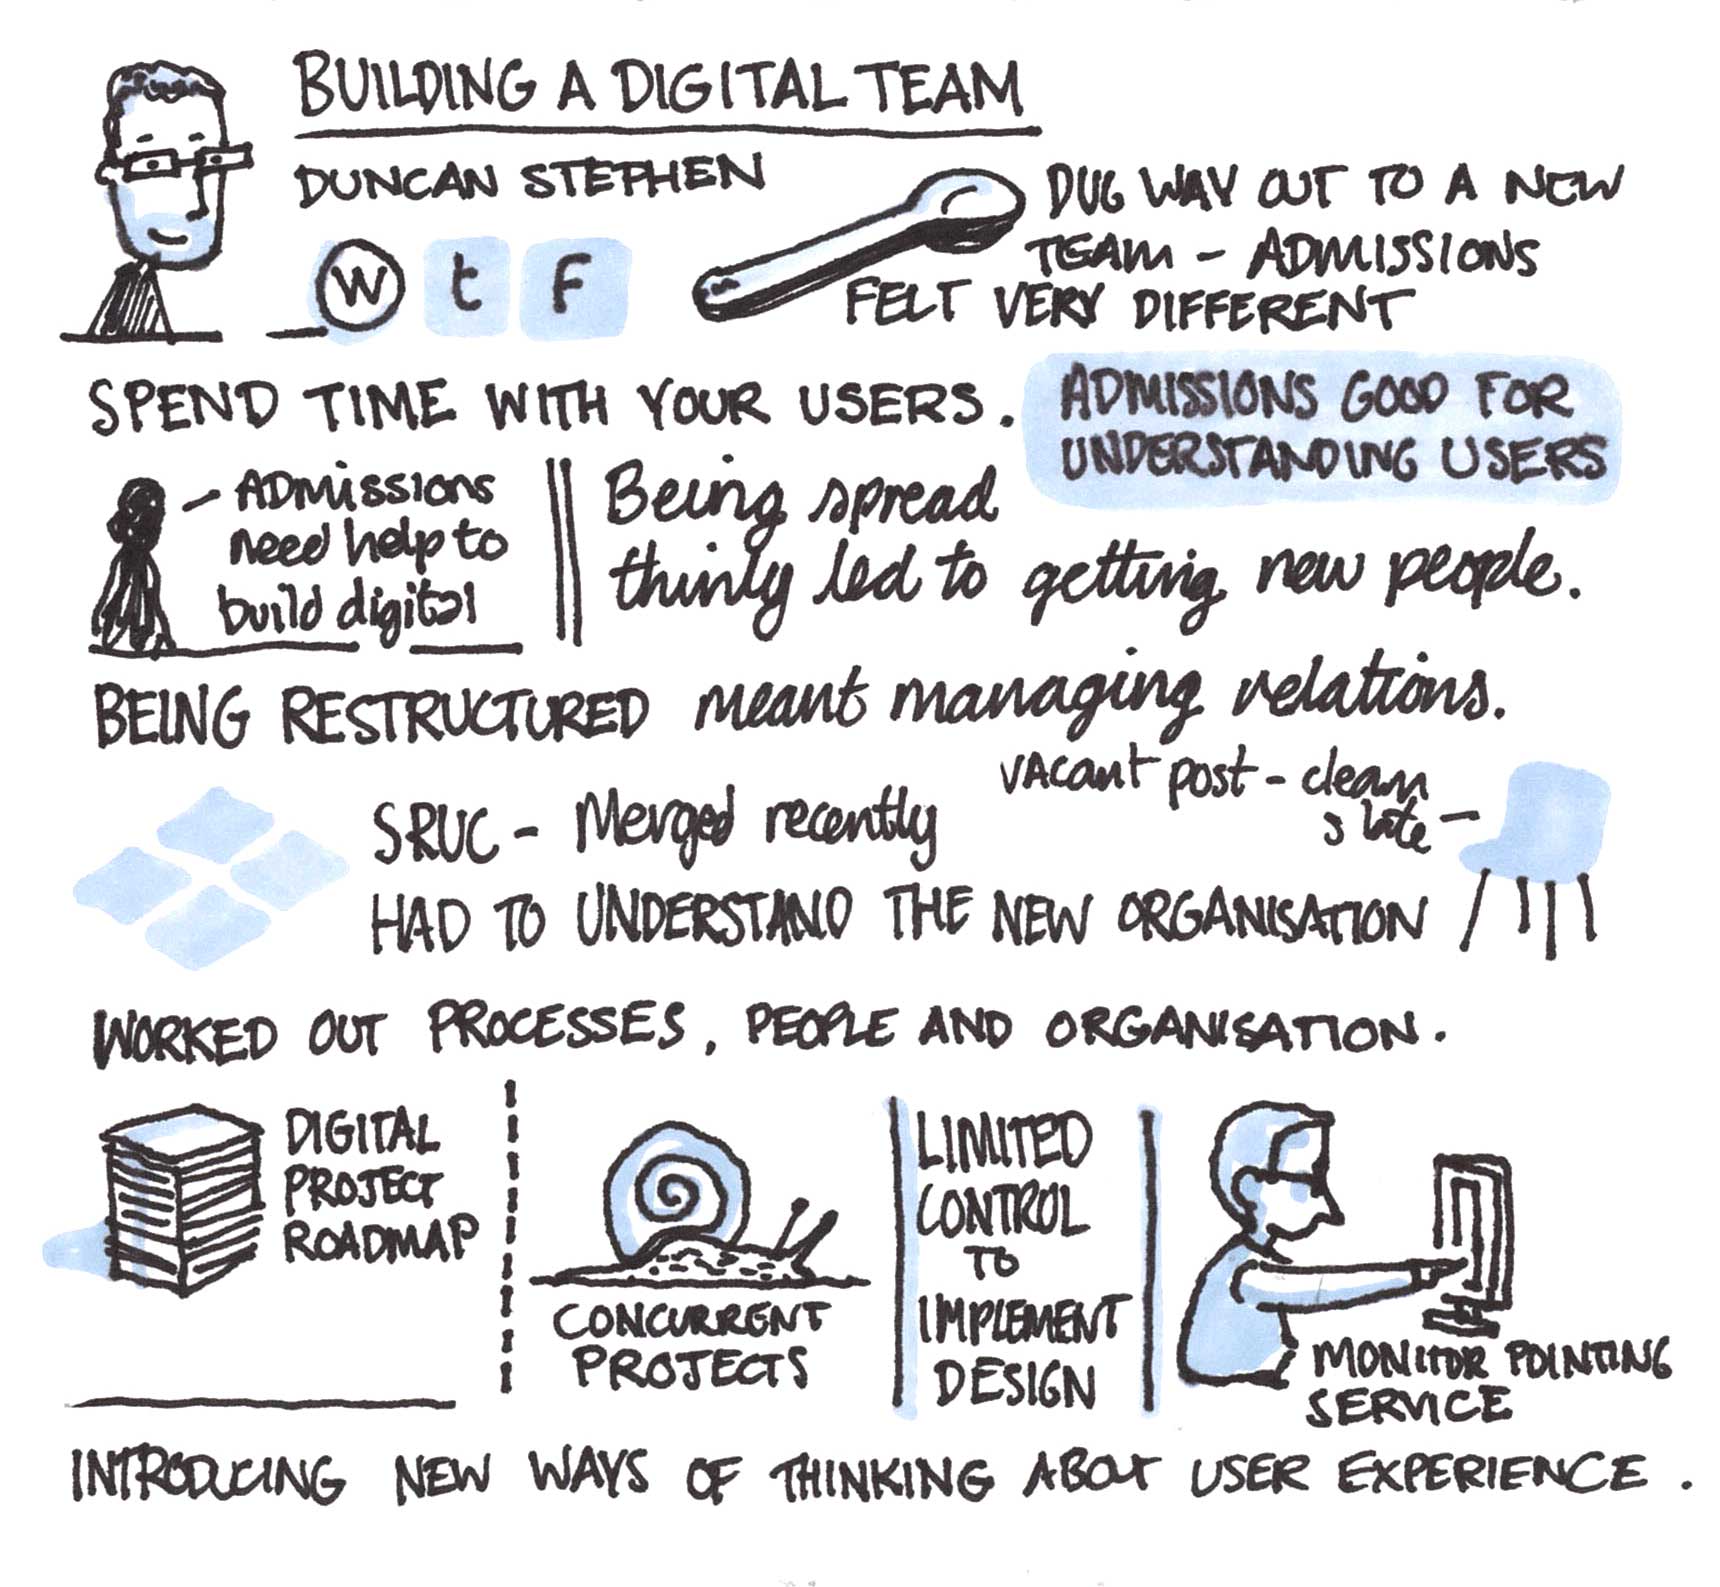 BUILDING A DIGITAL TEAM
DUNCAN STEPHEN
W t F
DUG WAY OUT TO A NEW
TEAM - ADMISSIONS
FELT VERY DIFFERENT
SPEND TIME WITH YOUR USERS.
ADMISSIONS GOOD FOR
UNDERSTANDING USERS
- ADMISSIONS
need help to
build digital
Being spread
thinly led to getting new people.
BEING RESTRUCTURED meant managing relations.
VAcant post - clean
slate -
SRUC - Merged recently
HAD TO UNDERSTAND THE NEW ORGANISATION
WORKED OUT PROCESSES, PEOPLE AND ORGANISATION.
DIGITAL
PROJECT
ROADMAP
CONCURRENT
PROJECTS
LIMITED
CONTROL
TO
IMPLEMENT
DESIGN
MONITOR POINTING
SERVICE
INTRODUCING NEW WAYS OF THINKING ABOUT USER EXPERIENCE.